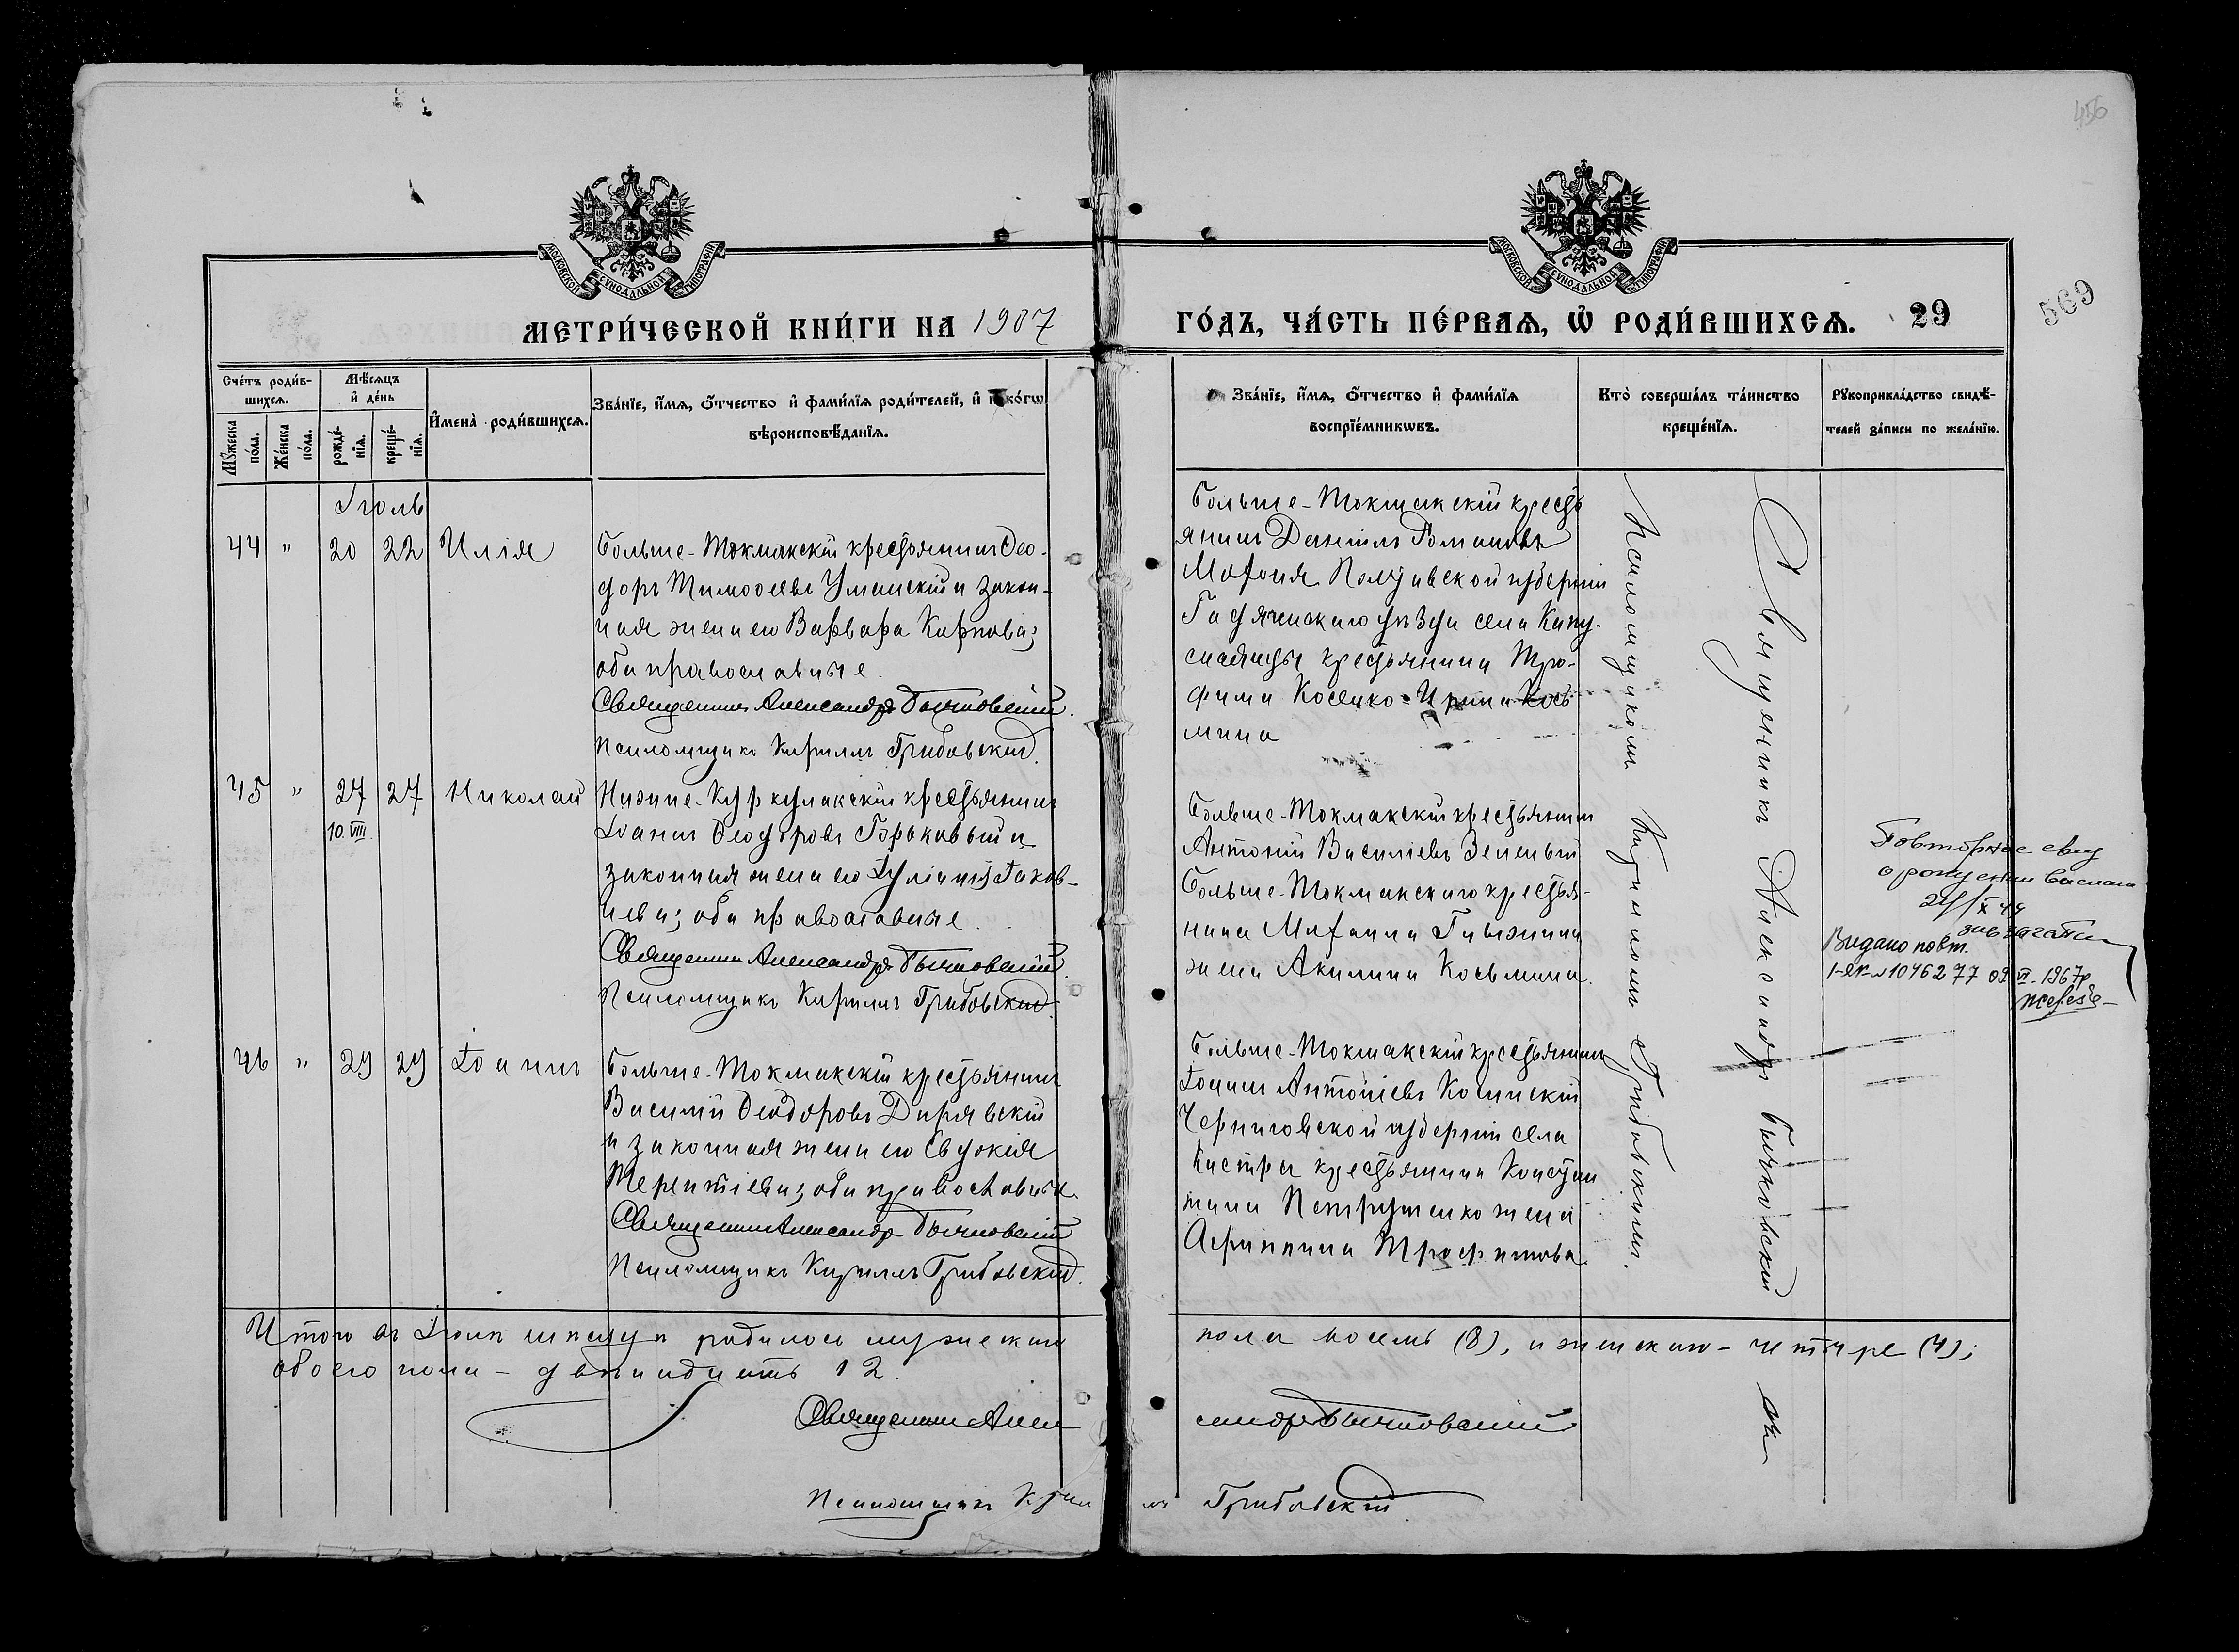 456
МОСКОВСКОЙ СѴНОДАЛЬНОЙ ТИПОГРАФІИ
МОСКОВСКОЙ СѴНОДАЛЬНОЙ ТИПОГРАФІИ
МЕТРИ́ЧЕСКОЙ КНИ́ГИ НА 1907
ГО́ДЪ, ЧА́СТЬ ПЕ́РВАѦ, Ѽ РОДИ́ВШИХСѦ. 29
569
Сче́тъ роди́в-
шихсѧ.
Мꙋ́жеска по́ла.
Же́нска по́ла.
Мѣ́сѧцъ и҆ де́нь
рожде́-нїѧ.
креще́-нїѧ.
И҆мена̀ роди́вшихсѧ.
Зва́нїе, и҆́мѧ, ѻ҆́тчество и҆ фами́лїѧ роди́телей, и҆ како́гѡ
вѣроисповѣ́данїѧ.
Зва́нїе, и҆́мѧ, ѻ҆́тчество и҆ фами́лїѧ
воспрїе́мникѡвъ.
Кто̀ соверша́лъ та́инство
креще́нїѧ.
Рꙋкоприкла́дство свидѣ́-
телей за́писи по жела́нїю.
Іюль
44 " 20 22 Илія
Больше-Токмакскій крестьянинъ Ѳео-
доръ Тимоѳеевъ Уманскій и закон-
ная жена его Варвара Карпова;
оба православные.
Священникъ Александръ Бычковскій.
Псаломщикъ Кириллъ Грибовскій.
Больше-Токмакскій кресть
янинъ Даніилъ Романовъ
Махоня Полтавской губерніи
Гадячскаго уѣзда села Капу-
крестьянина Тро-
фима Косенко Ирина Кось
мина
45 " 27 27 Николай
10.VIII.
Нижне-Куркулакскій крестьянинъ
Іоаннъ Ѳеодоровъ Горьковый и
законная жена его Іуліанія Іаков-
лева; оба православные.
Священникъ Александръ Бычковскій.
Псаломщикъ Кириллъ Грибовскій.
Больше-Токмакскій крестьянинъ
Антоній Василіевъ Зеленый
Больше-Токмакскаго крестья-
нина Михаила
жена Акилина Косьмина.
Повторное свид
о рождении выслано
24/X 44
Видано повт.
I-ЯК № 1046277 09.VI.1967р
46 " 29 29 Іоаннъ
Больше-Токмакскій крестьянинъ
Василій Ѳеодоровъ Дирявскій
и законная жена его Евдокія
Терентіева; оба православные.
Священникъ Александръ Бычковскій
Псаломщикъ Кириллъ Грибовскій.
Больше-Токмакскій крестьянинъ
Іоаннъ Антоніевъ Косинскій
Черниговской губерніи села
Кистра крестьянина Констан
тина Петрушенко жена
Агриппина Трофимова.
Священникъ Александръ Бычковскій съ
Псаломщикомъ Кирилломъ Грибовскимъ.
Итого въ Іюлѣ мѣсяцѣ родилось мужеска
пола восемь (8), и женскаго - четыре (4);
обоего пола - двѣнадцать 12.
Священникъ Алек
сандръ Бычковскій
Псаломщикъ Кирил
лъ Грибовскій.